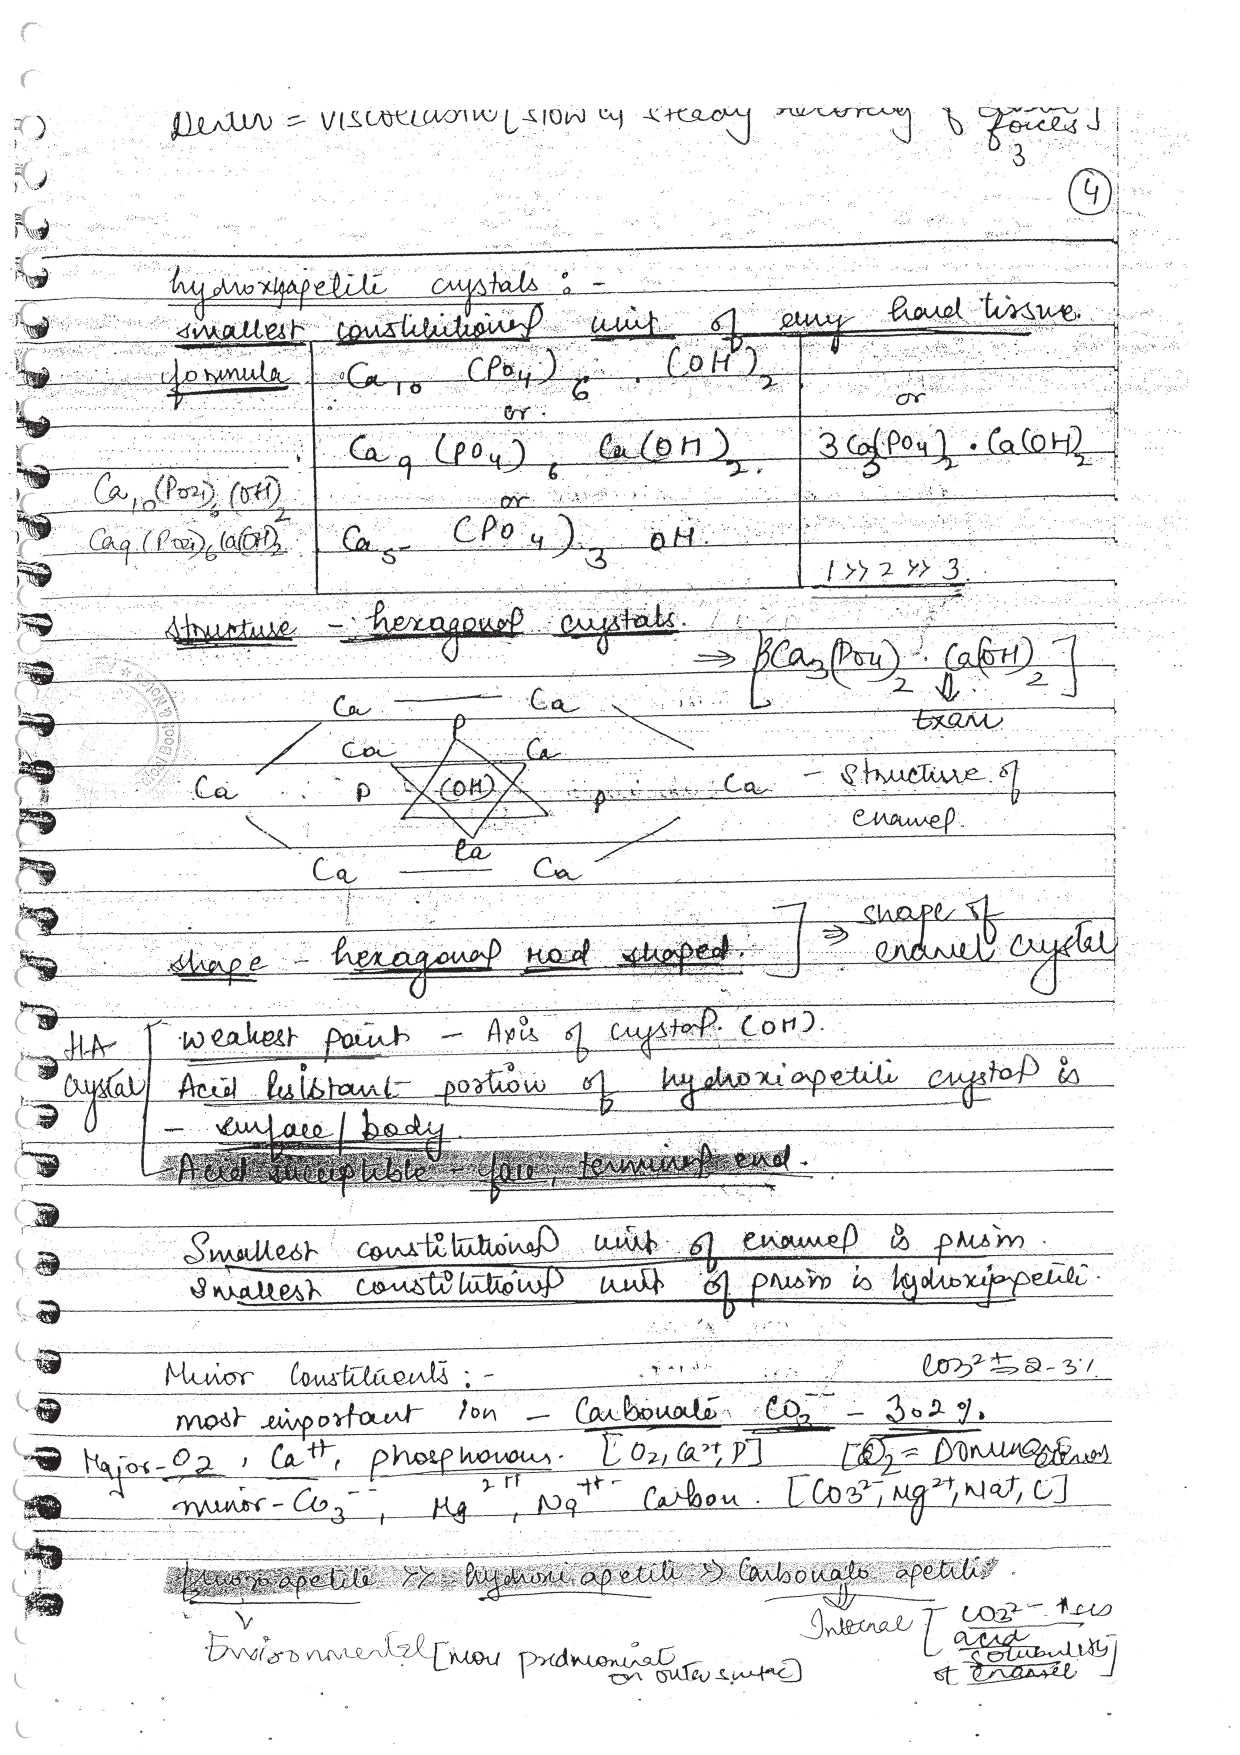 = viscoelastic [slow & steady recovery of forces]
3
4
hydroxyapetite crystals : -
smallest constitutional unit of any hard tissue.
formula Ca10 (Po4)6 . (OH)2
or
or.
Ca9 (PO4)6 Ca(OH)2. 3Ca3(PO4)2 . Ca(OH)2
Ca10(Po4)6(OH)2
or
Ca9(Po4)6Ca(OH)2 Ca5 (PO4)3 OH.
1 >> 2 >> 3
structure - hexagonal crystals.
⇒ [3Ca3(Po4)2 . Ca(OH)2]
Exam
Ca Ca
P
Ca Ca
Ca P (OH) P Ca - structure of
enamel.
Ca
Ca Ca
shape - hexagonal rod shaped. ] ⇒ shape of
enamel crystal
HA
crystal
weakest point - Axis of crystal. (OH).
Acid resistant portion of hydroxiapetite crystal is
- surface/body.
Acid succeptible - face, terminal end.
Smallest constitutional unit of enamel is prism.
smallest constitutional unit of prism is hydroxiapetite.
Minor Constituents : - CO3 2-3%
most important ion - Carbonate CO3-- - 3.2%.
Major - O2, Ca++, phosphorous. [O2, Ca2+, P]
minor - Co3--, Mg2++, Na++ Carbon. [CO32-, Mg2+, Na+, C]
fluoroapetite >> hydroxi apetite > Carbonato apetite.
Environmental [more predominat on outer surface]
Internal [CO32- acid solubility of enamel]